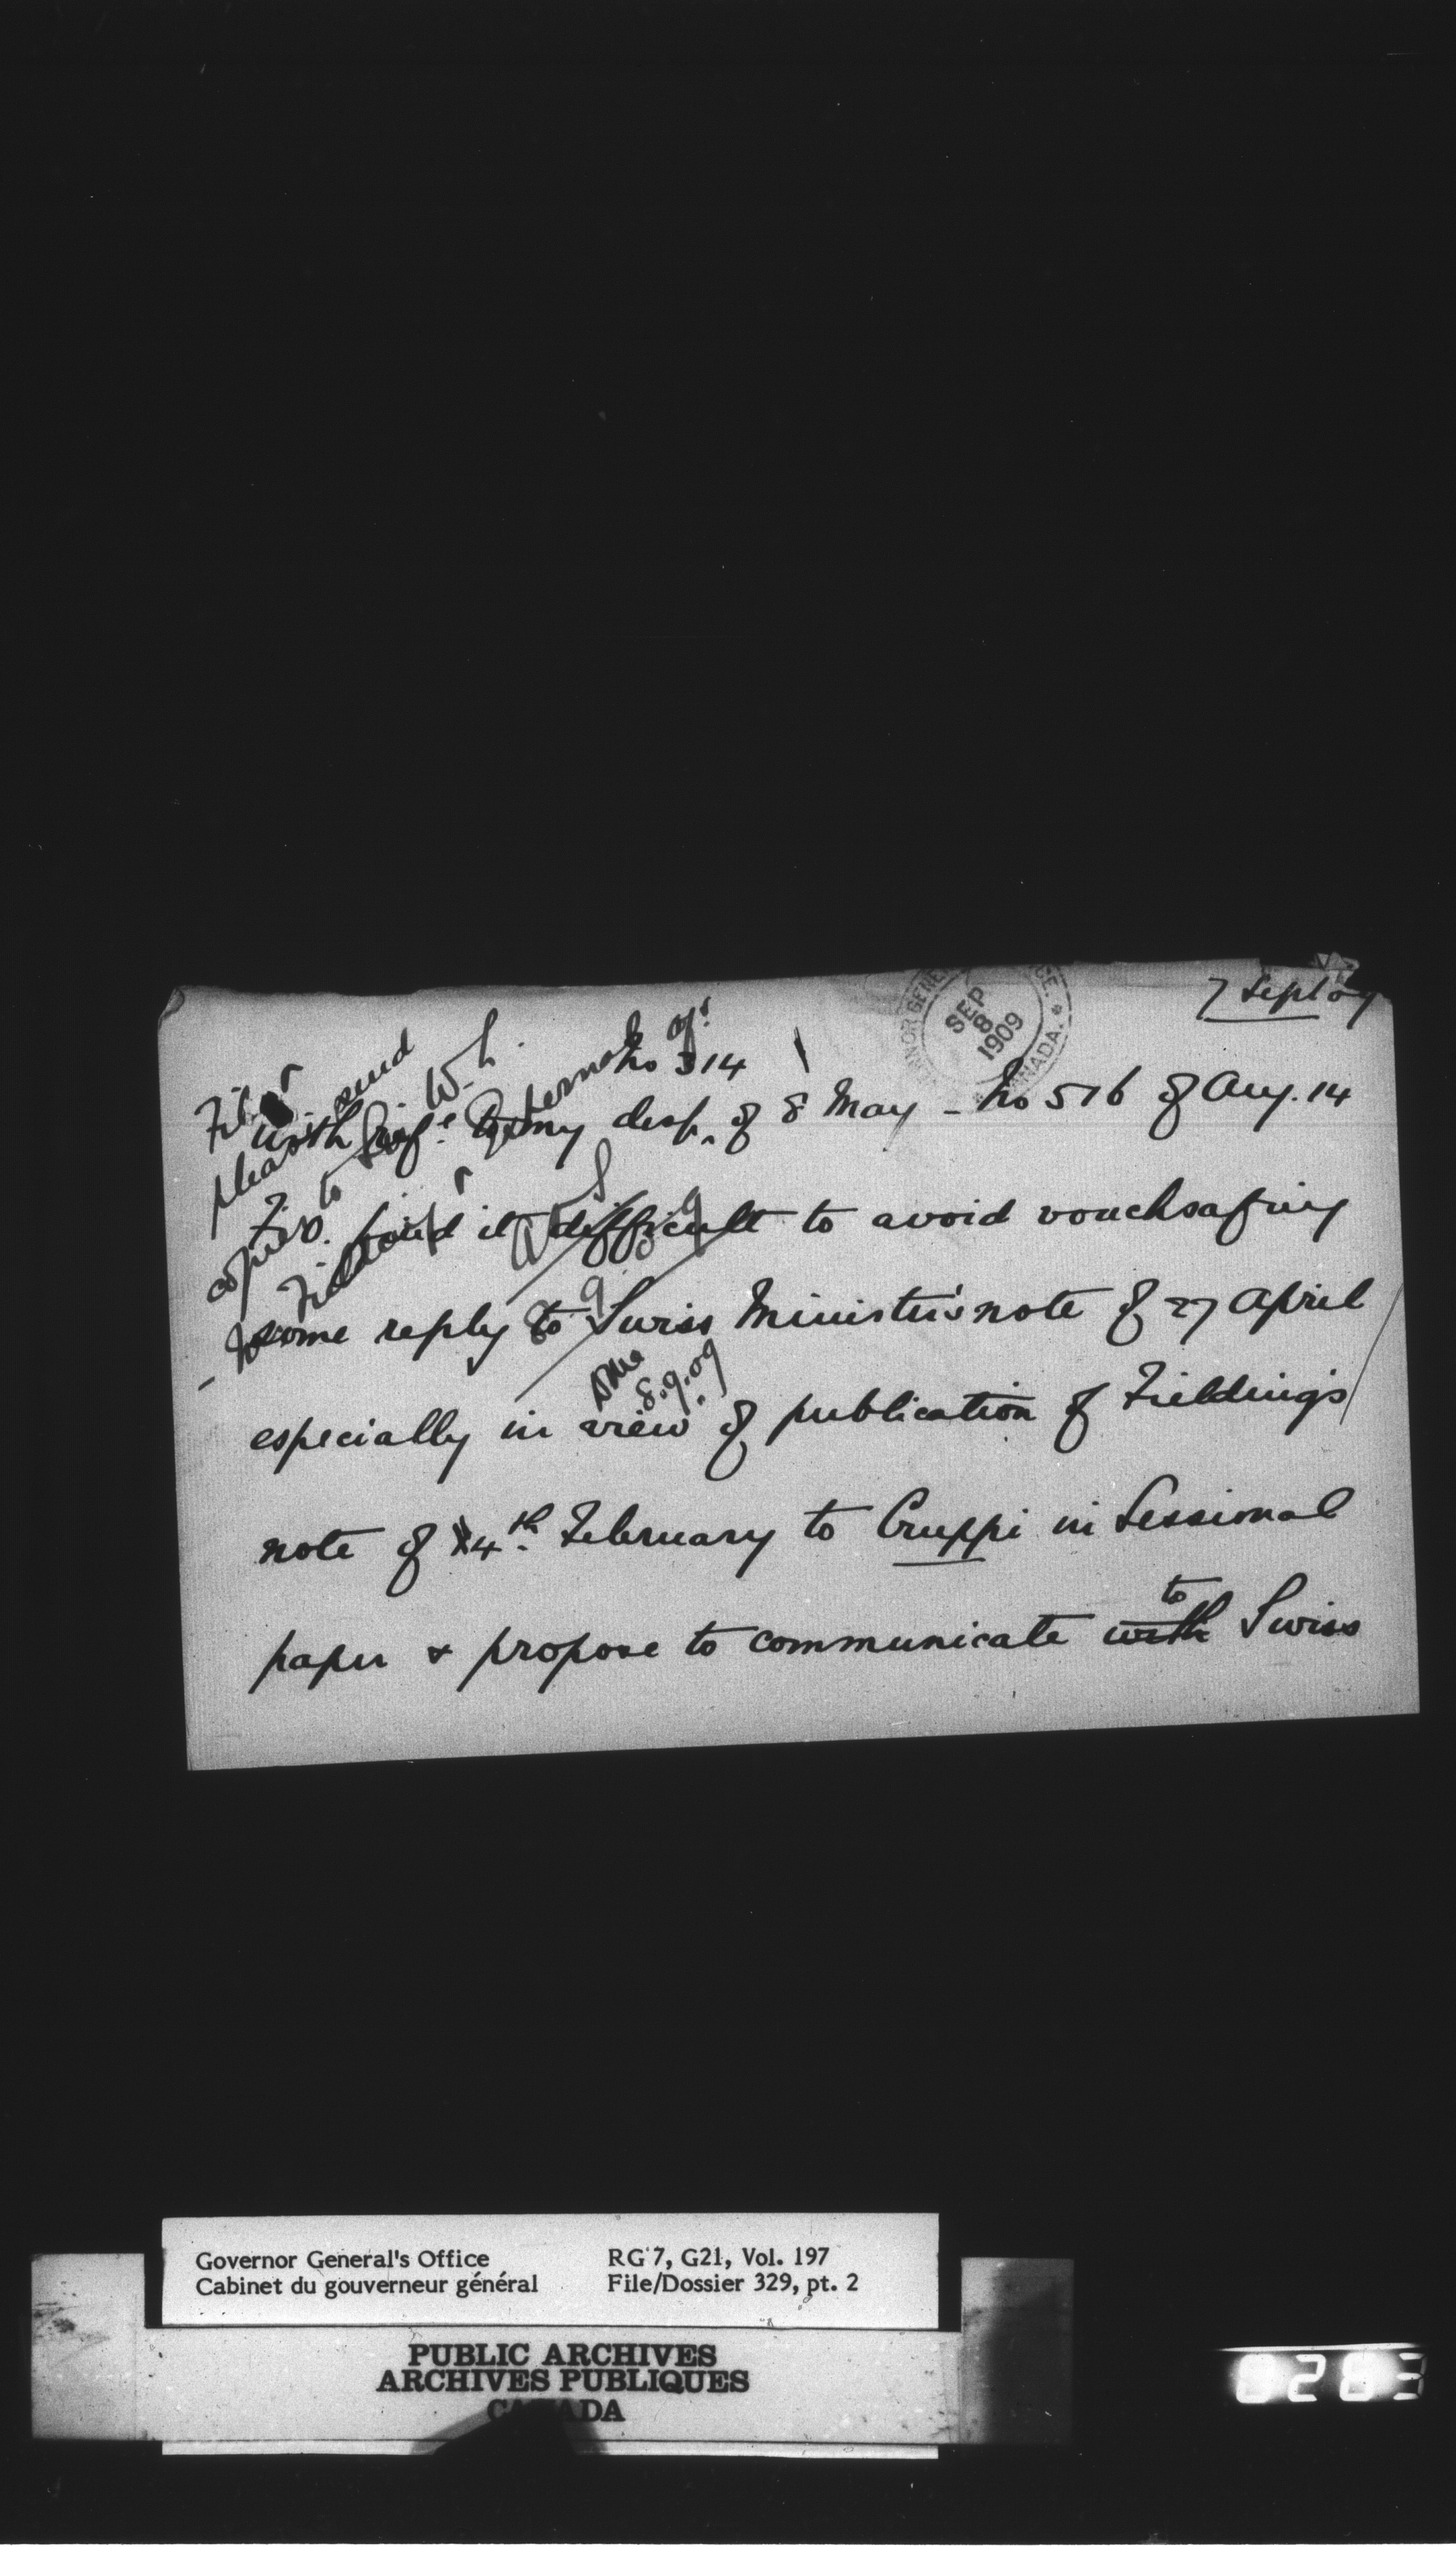 7 Sept 09
GOVERNOR GENERAL'S OFFICE. CANADA.
SEP
8
1909
No 314
with ref.e to my desp. of 8 May - No 516 of Aug. 14
find it difficult to avoid vouchsafing
some reply to Swiss Minister's note of 27 April
especially in view of publication of Fielding's
note of 4th. February to Cruppi in Sessional
paper & propose to communicate with to Swiss
File
please send
copies to Sir W. L.
8 9
8 9
8.9.09
Governor General's Office
Cabinet du gouverneur général
RG 7, G21, Vol. 197
File/Dossier 329, pt. 2
PUBLIC ARCHIVES
ARCHIVES PUBLIQUES
CANADA
0283